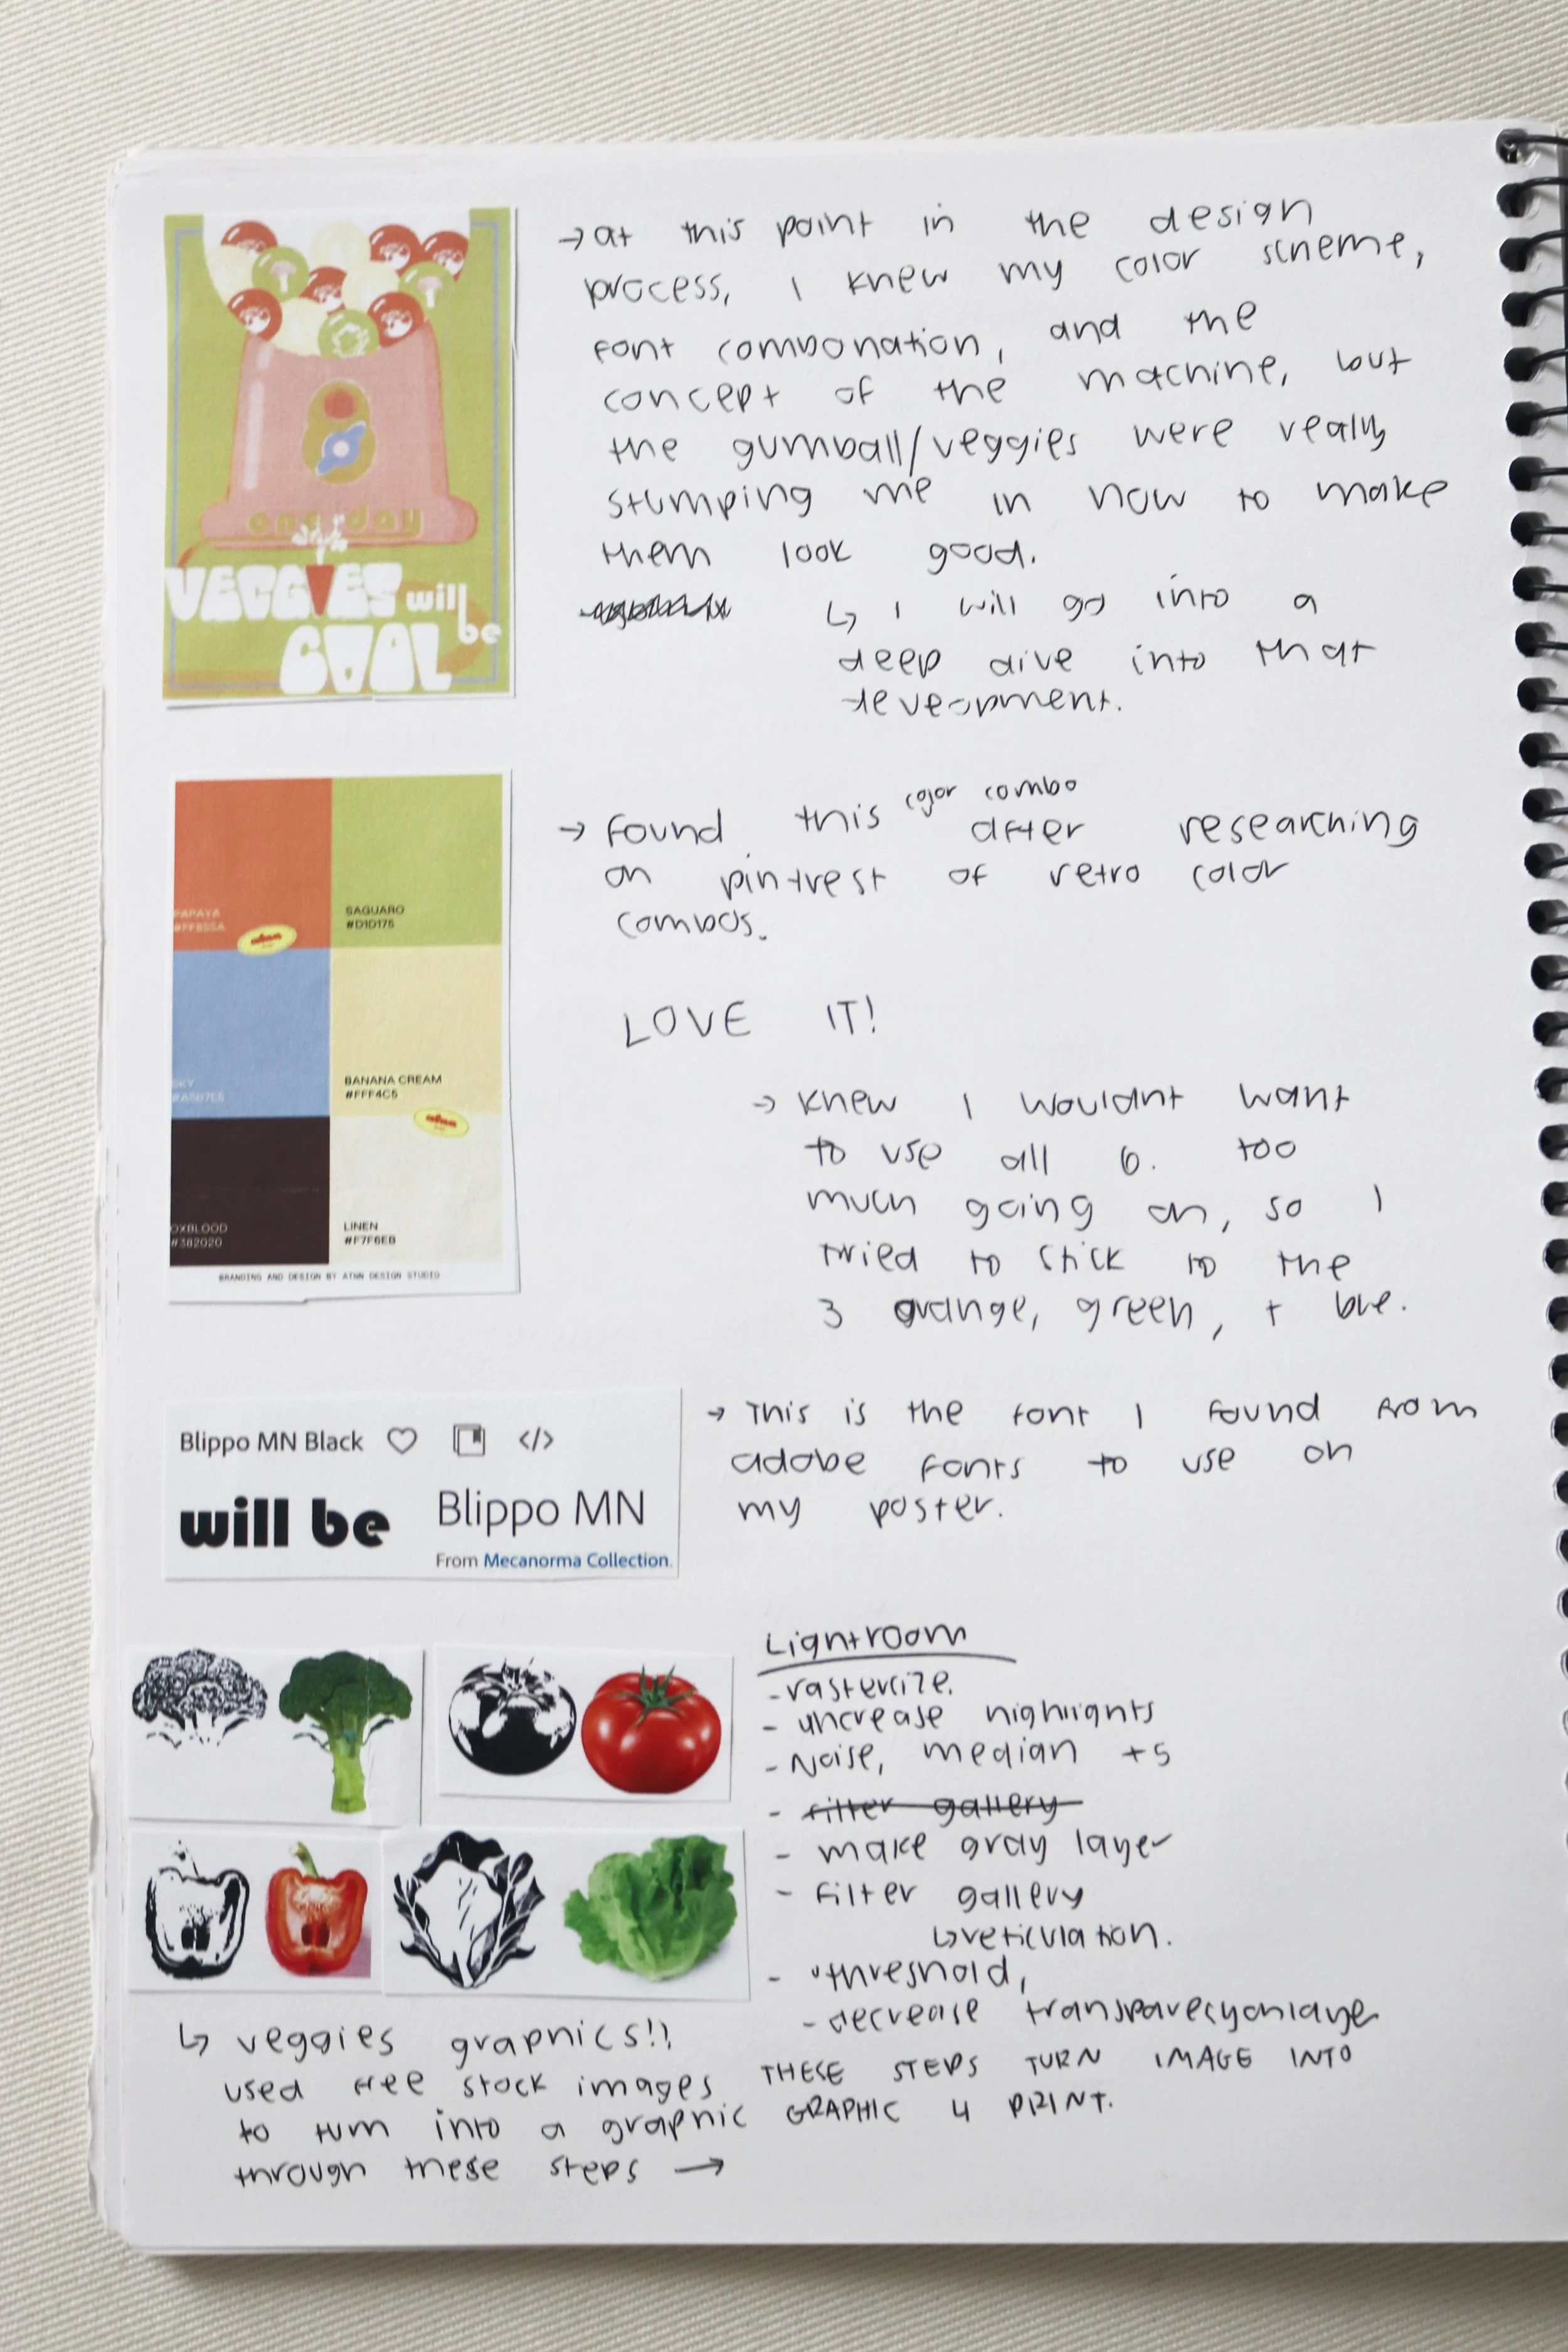 one day
VEGGIES will
be
COOL
→ at this point in the design
process, I knew my color scheme,
font combonation, and the
concept of the machine, but
the gumball/veggies were really
stumping me in how to make
them look good.
↳ I will go into a
deep dive into that
development.
PAPAYA
#FF855A
SAGUARO
#D1D175
SKY
#A5B7E5
BANANA CREAM
#FFF4C5
OXBLOOD
#382020
LINEN
#F7F6EB
BRANDING AND DESIGN BY ATNN DESIGN STUDIO
→ found this color combo after researching
on pintrest of retro color
combos.
LOVE IT!
→ knew I wouldnt want
to use all 6. too
much going on, so I
tried to stick to the
3 orange, green, + blue.
Blippo MN Black </>
will be Blippo MN
From Mecanorma Collection.
→ This is the font I found from
adobe fonts to use on
my poster.
Lightroom
- rasterize.
- increase highlights
- Noise, median +5
- filter gallery
- make gray layer
- filter gallery
↳ reticulation.
- threshold,
- decrease transparecy on layer
THESE STEPS TURN IMAGE INTO
GRAPHIC 4 PRINT.
↳ veggies graphics!!
used free stock images
to turn into a graphic
through these steps →